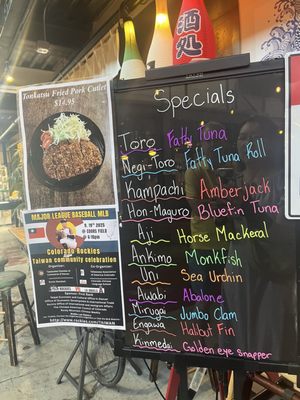 酒処
Tonkatsu Fried Pork Cutlet
$14.95
MAJOR LEAGUE BASEBALL MLB
Colorado Rockies
Taiwan community celebration
Specials
Toro Fatty Tuna
Negi-Toro Fatty Tuna Roll
Kampachi Amberjack
Hon-Maguro Bluefin Tuna
Aji Horse Mackeral
Ankimo Monkfish
Uni Sea Urchin
Awabi Abalone
Mirugai Jumbo Clam
Engawa Halibut Fin
Kinmedai Golden eye snapper